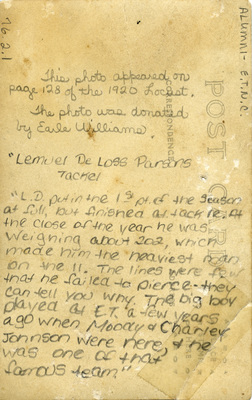 76.2.1
ALUMNI - E.T.N.C.
This photo appeared on
page 128 of the 1920 Locust.
The photo was donated
by Earle Williams.
POST CARD
CORRESPONDENCE
"Lemuel De Loss Parsons
Tackel
"L.D. put in the 1st pt. of the season
at full, but finished at tackle. At
the close of the year he was
weighing about 202, which
made him the heaviest man
on the 11. The lines were few
that he failed to pierce - they
can tell you why. The big boy
played at E.T. a few years
ago when Moody & Charley
Johnson were here, & he
was one of that
famous team."